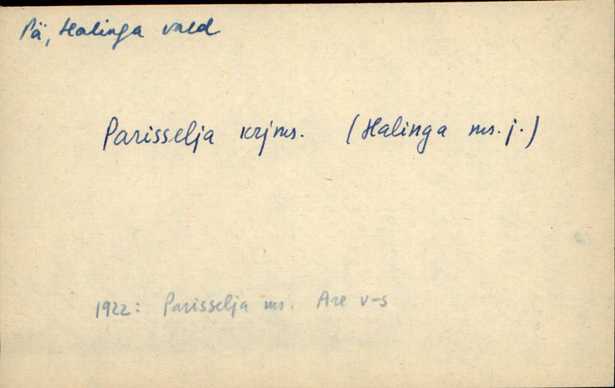 Pä, Halinga vald
Parisselja krjms. (Halinga ms. j.)
1922: Parisselja ms. Are v-s